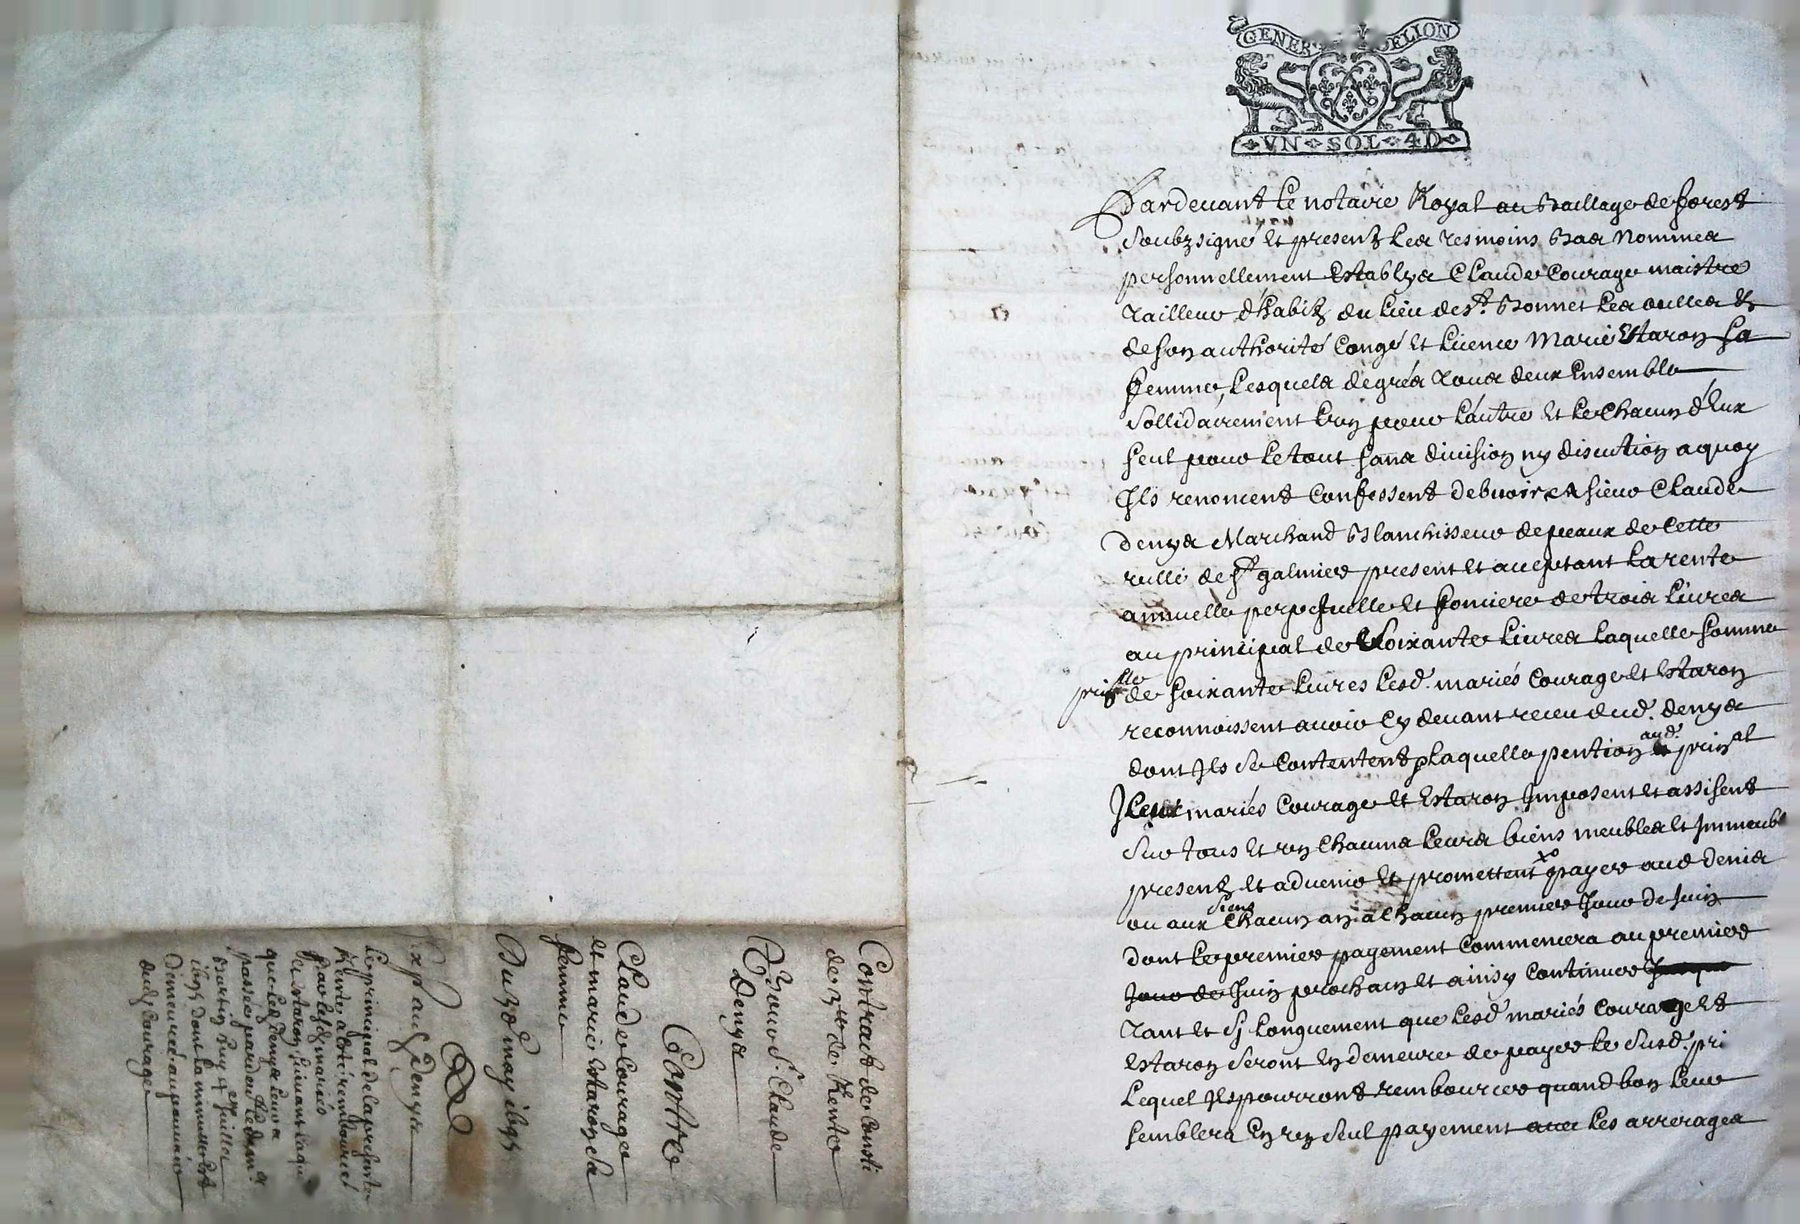 GENER DELION
VN SOL 4D
Pardevant le notaire Royal au Bailliage de forest
Soubzsigné et presentz les tesmoins Bas Nommes
personnellement Establys Claude Courage maistre
tailleur d'habitz du lieu de St. Bonnet les oulles &
de son authorité Congé et licence Marie Staron sa
femme, lesquels de grés tous deux Ensemble
Sollidairement l'un pour l'autre et le Chacun d'Eux
seul pour le tout sans division ny discution a quoy
Ils renoncent Confessent debvoir a sieur Claude
Denys Marchand Blanchisseur de peaux de Cette
ville de St galmier present et aceptant la rente
annuelle perpetuelle et fonciere de trois livres
au principal de Soixante livres laquelle somme
prisle de soixante livres lesd. mariés Courage et Staron
reconnoissent avoir Cy devant receu dud. denys
dont Ils se Contentent laquelle pention aud. prinal
Iceux mariés Courage et Staron Imposent et assisent
Sur tous et un Chacuns leurs biens meubles et Immeub
presentz et advenir et promettent payer aud denis
ou aux siens Chacun an a Chacun premier Jour de Juin
dont le premier payement Commencera au premier
Jour de Juin prochain et ainsy Continuer
tant et Sy longuement que lesd mariés Courage et
Staron Seront En demeure de payer le Susd. pri
Lequel Ils pourront rembourcer quand bon leur
semblera En un seul payement avec les arrerages
Contract de Consti
de 3tt de Rente
Pour Sr. Claude
Denys
Contre
Claude Courage
et marie Staron sa
femme
Du 30e may 1695
Exp aud Denys
Le principal de la presente
Rente a été rembourcé
par lesd mariés
et Staron suivant la qui
que led Denys leur a
passée pardevt led no.
Bartin huy 4e Juillet
1695 dont la minutte est
Demeurée au pouvoir
dud Courage